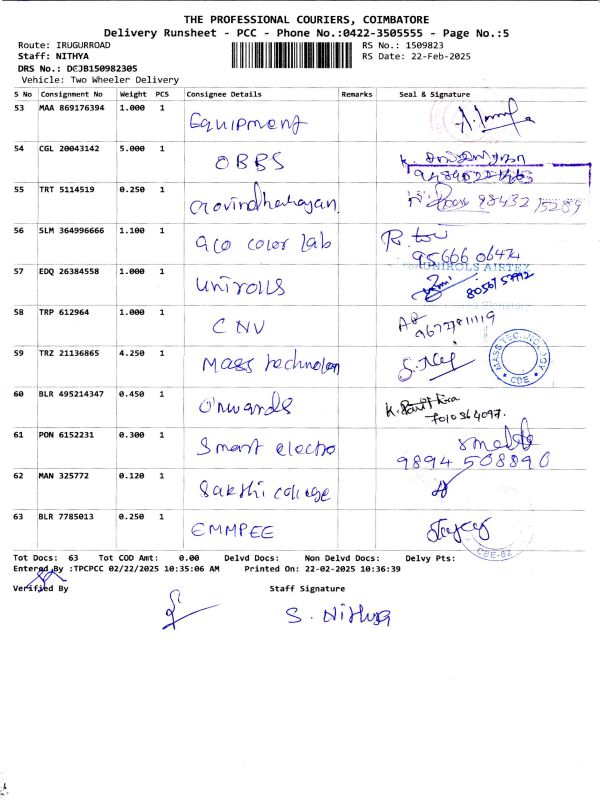 THE PROFESSIONAL COURIERS, COIMBATORE
Delivery Runsheet - PCC - Phone No.:0422-3505555 - Page No.:5
Route: IRUGURROAD RS No.: 1509823
Staff: NITHYA RS Date: 22-Feb-2025
DRS No.: DCJB150982305
Vehicle: Two Wheeler Delivery
S No Consignment No Weight PCS Consignee Details Remarks Seal & Signature
53 MAA 869176394 1.000 1 Equipment
54 CGL 20043142 5.000 1 OBBS
55 TRT 5114519 0.250 1 Govindharajan 98432 15289
56 SLM 364996666 1.100 1 aco color lab 95666 06474
57 EDQ 26384558 1.000 1 Unirolls UNIROLS AIRTEX 8056757992
58 TRP 612964 1.000 1 CNV
59 TRZ 21136865 4.250 1 Mass technolon MASS TECHNOLOGY CBE
60 BLR 495214347 0.450 1 Onwards 7010364097.
61 PON 6152231 0.300 1 Smart electro 9894 508890
62 MAN 325772 0.120 1 Sakthi college
63 BLR 7785013 0.250 1 EMMPEE CBE-62
Tot Docs: 63 Tot COD Amt: 0.00 Delvd Docs: Non Delvd Docs: Delvy Pts:
Entered By :TPCPCC 02/22/2025 10:35:06 AM Printed On: 22-02-2025 10:36:39
Verified By Staff Signature
S. Nithya